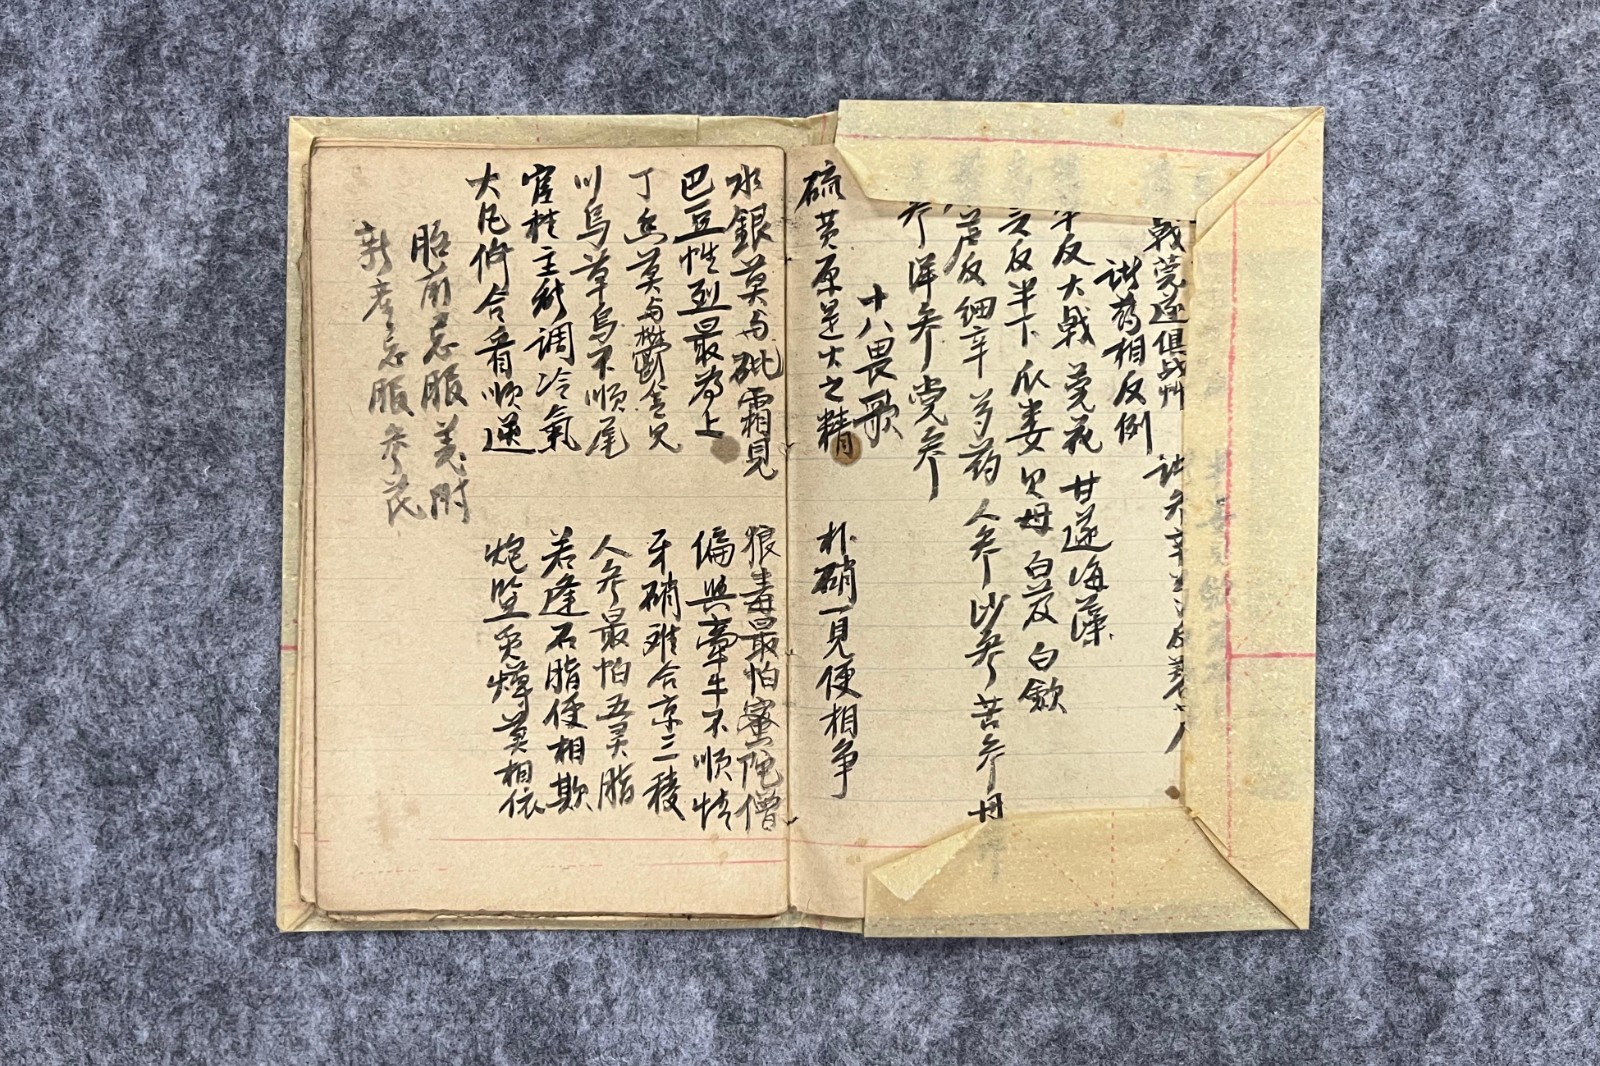 戟芫遂俱战艸 諸参辛芍
諸药相反例
草反大戟 芫花 甘遂 海藻
反半下 瓜娄 贝母 白芨 白歛
芦反细辛 芍药 人参 沙参 苦参 丹
参 洋参 党参
十八畏歌
硫黄原是火之精 朴硝一見便相争
水銀莫与砒霜見 狼毒最怕蜜陀僧
巴豆性烈最為上 偏與牽牛不順情
丁香莫与欝金见 牙硝难合京三稜
川烏草烏不順尾 人参最怕五灵脂
官桂主能調冷氣 若逢石脂便相欺
大凡修合看順逆 炮爁炙煿莫相依
胎前忌服姜附
新产忌服参芪